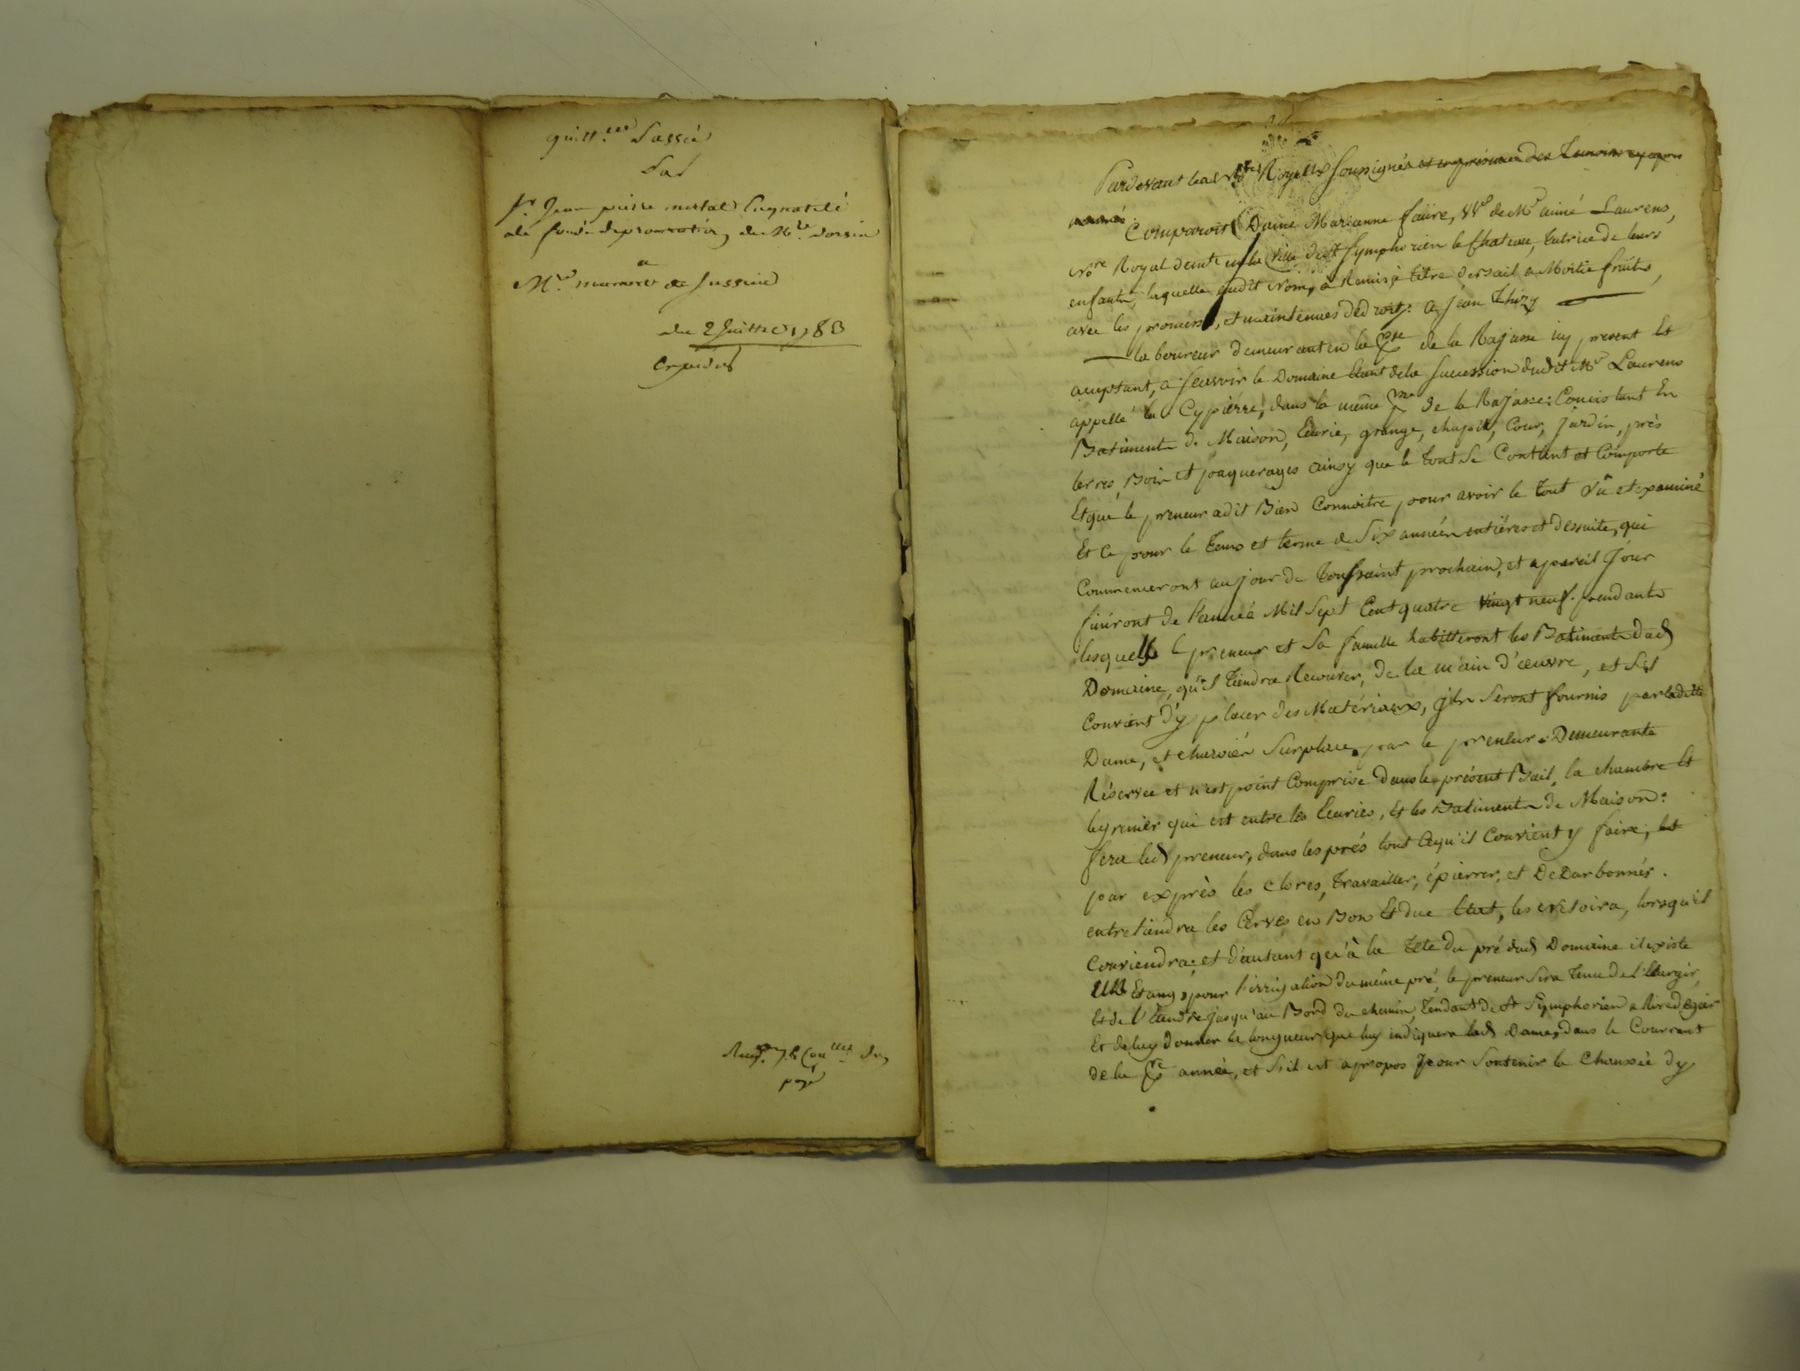 quitt.ces Passée
Par
Sr. Jean pierre
fondé de procuration de Mr. de
a
Mr. de Jussieu
du 2 Juillet 1783
Expédié
payé
Pardevant les Nres Royaux soussignés et en présence des Temoins cy apres
només Comparoit Dame Marianne faüre, Vve de Mr aimé Laurens,
Nore Royal de cette ville de St Symphorien le Chateau, tutrice de leurs
enfants, laquelle audit Nom, a Remis à titre de Bail a Moitié fruits,
avec les promesses, et maintenues de droit: a Jean Thizy
laboureur demeurant en la psse de la Rajasse icy present Et
acceptant, a sçavoir le Domaine Etant de la succession dudit Mr Laurens
appellé la Cypierre, dans la même psse de la Rajasse: Concistant En
Batiments de Maison, Ecurie, grange, chapit, Cour, Jardin, près
terres, Bois et paquerages ainsy que le tout se Contient et Comporte
Et que le preneur a dit Bien Connoitre pour avoir le tout vû et examiné
Et Ce pour le tems et terme de Six années entiéres et dessuite, qui
Commenceront au jour de Toussaint prochain, et a pareil Jour
finiront de l'année Mil Sept Cent quatre vingt neuf. pendants
lesquelles le preneur et Sa famille habitteront les Batiments dud
Domaine, qu'il tiendra Recouvrir, de la main d'œuvre, et S'il
Convient d'y placer des Matériaux, ils Seront fournis par ladite
Dame, et chariés Surplace par le preneur. Demeurants
Réservée et n'est point Comprise dans le présent Bail, la chambre Et
le grenier qui est entre les Ecuries, Et les Batiments de Maison:
fera led preneur, dans les prés tout Ce qu'il Convient y faire, Et
par exprès les clores, travailler, épierrer, et Dedarbonnés.
entretiendra les Serves en Bon Et due Etat, les curoira, lorsqu'il
Conviendra; et d'autant qu'à la Tete du pré dud Domaine il existe
un Etang, pour l'irrigation du même pré, le preneur sera tenu de l'élargir,
Et de l'étendre jusqu'au Bord du chemin, tendant de St Symphorien a Rivedegier
Et de luy donner la longueur que luy indiquera lad Dame, dans le Courrant
de la année, et S'il est apropos pour Soutenir la Chaussée d'y